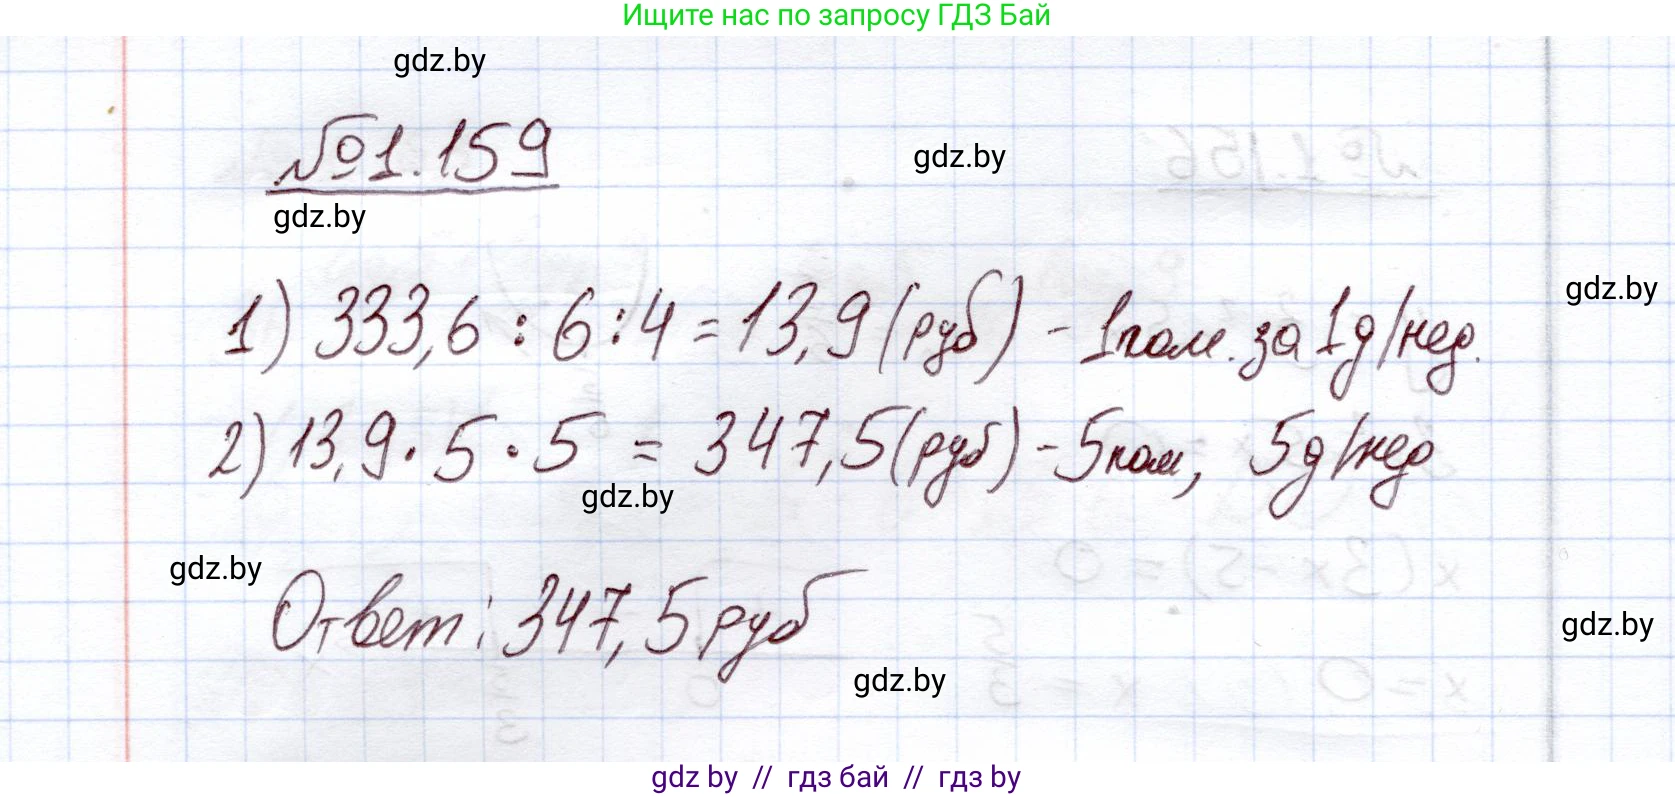 Ищите нас по запросу ГДЗ Бай
gdz.by
№1.159
gdz.by
gdz.by
gdz.by
1) 333,6 : 6 : 4 = 13,9 (руб) - 1 пом. за 1 д/нед.
2) 13,9 · 5 · 5 = 347,5 (руб) - 5 пом, 5 д/нед
gdz.by
gdz.by
Ответ: 347,5 руб
gdz.by
gdz.by
gdz by // гдз бай // гдз by